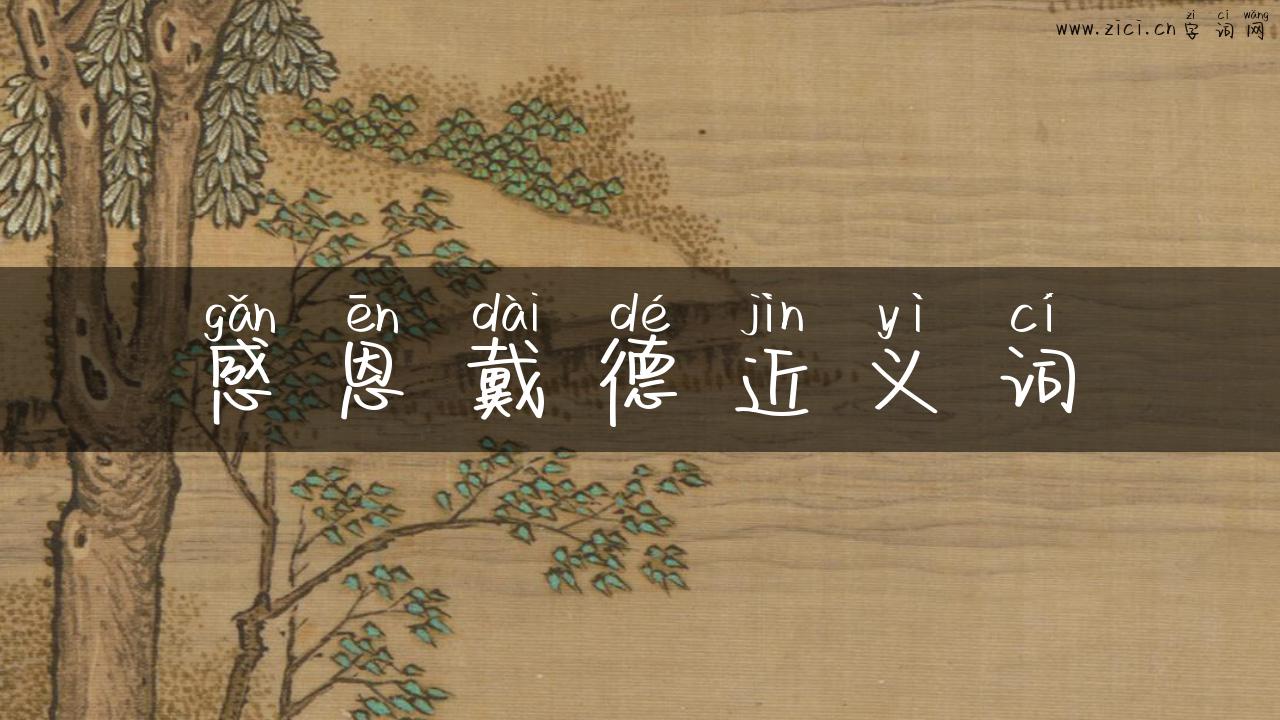 zì cí wǎng
www.zici.cn 字词网
gǎn ēn dài dé jìn yì cí
感恩戴德近义词